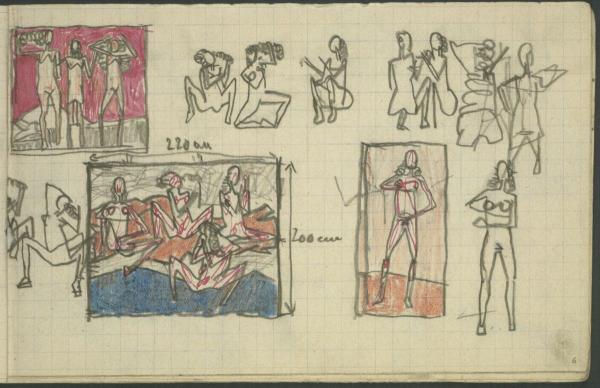 220 cm
200 cm
6